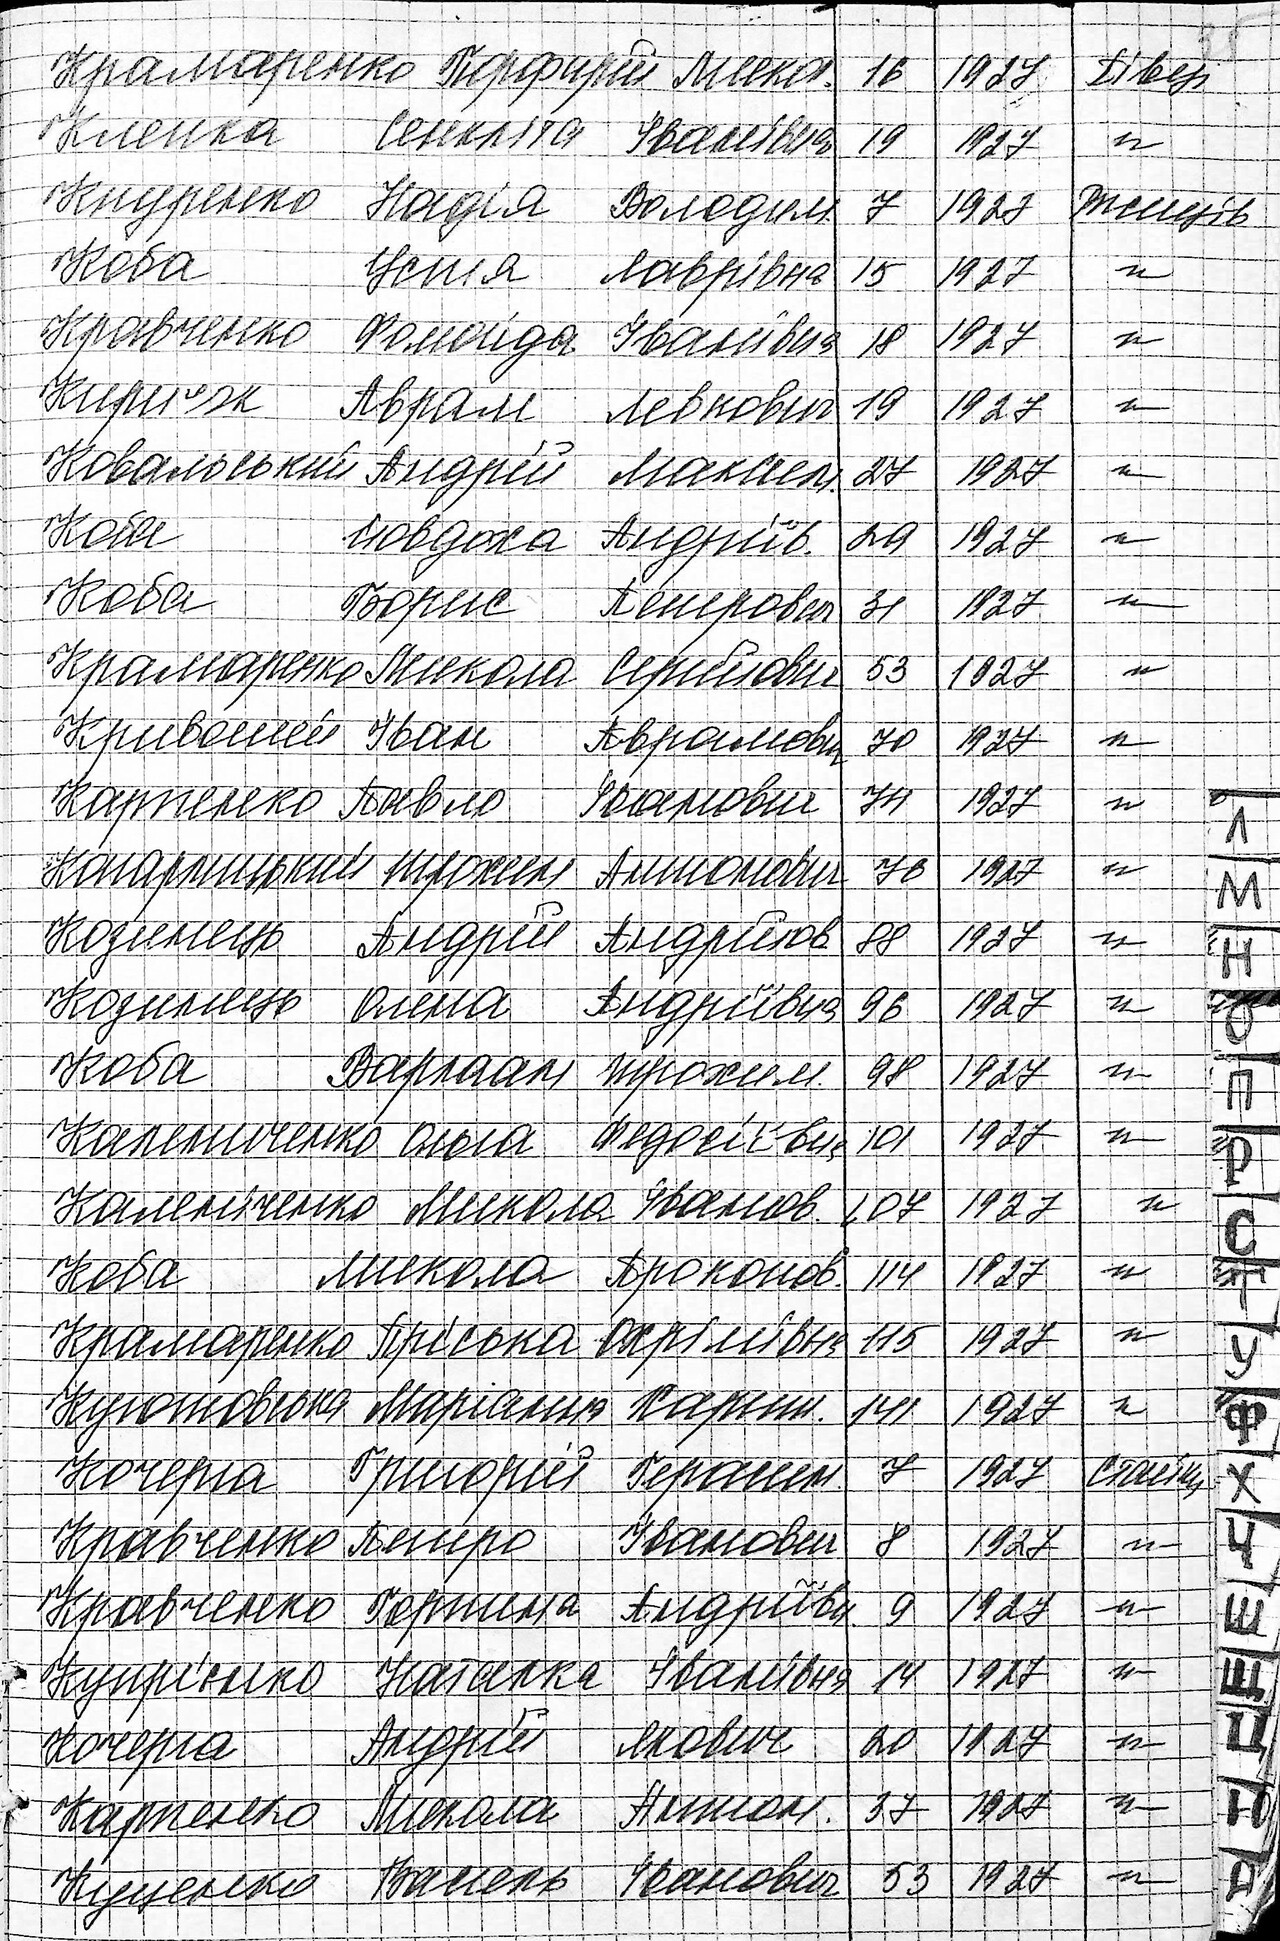 Крамаренко Порфирій Микол. 16 1927 Півец
Клепка Сенкліта Іванівна 19 1927 "
Кнуренко Надія Володим. 7 1927 Ржищів
Коба Устія Лаврівна 15 1927 "
Кравченко Іванівна 18 1927 "
Киричок Аврам Левкович 19 1927 "
Ковальський Андрій Максим. 27 1927 "
Коба Явдоха Андріїв. 29 1927 "
Коба Борис Петрович 31 1927 "
Крамаренко Микола Сергійович 53 1927 "
Кривошей Іван Аврамович 70 1927 "
Карпенко Павло Іванович 74 1927 "
Трохим Антонович 78 1927 "
Козинець Андрій Андрійов 88 1927 "
Козинець Олена Андріївна 96 1927 "
Коба Варлаам Трохим. 98 1927 "
Калениченко Ольга Федосіївна 101 1927 "
Каленіченко Микола Іванов. 107 1927 "
Коба Микола Прокопов. 114 1927 "
Крамаренко Пріська Охрімівна 115 1927 "
Маріанна Карпи. 141 1927 "
Кочерга Григорій Герасим. 7 1927 Стайки
Кравченко Петро Іванович 8 1927 "
Кравченко Горпина Андріївн. 9 1927 "
Купрієнко Наталка Іванівна 14 1927 "
Кочерга Андрій Якович 20 1927 "
Карпенко Микола Антон. 37 1927 "
Куценко Василь Іванович 53 1927 "
Л
М
Н
О
П
Р
С
Т
У
Ф
Х
Ч
Ш
Щ
Ц